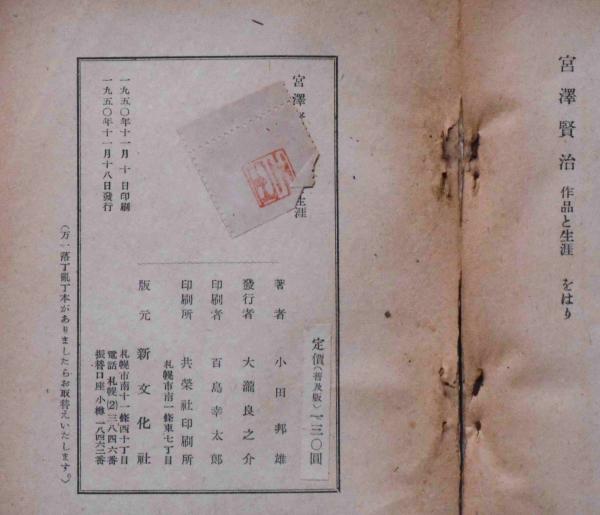 宮澤賢治 作品と生涯 をはり
宮澤
生涯
一九五〇年十一月十日印刷
一九五〇年十一月十八日發行
定價(普及版)一三〇圓
著者 小田邦雄
發行者 大瀧良之介
印刷者 百島幸太郎
札幌市南一條東七丁目
印刷所 共榮社印刷所
版元 新文化社
札幌市南十一條西十丁目
電話 札幌(2)三八四六番
振替口座 小樽 一八四六三番
(万一落丁亂丁本がありましたらお取替えいたします。)